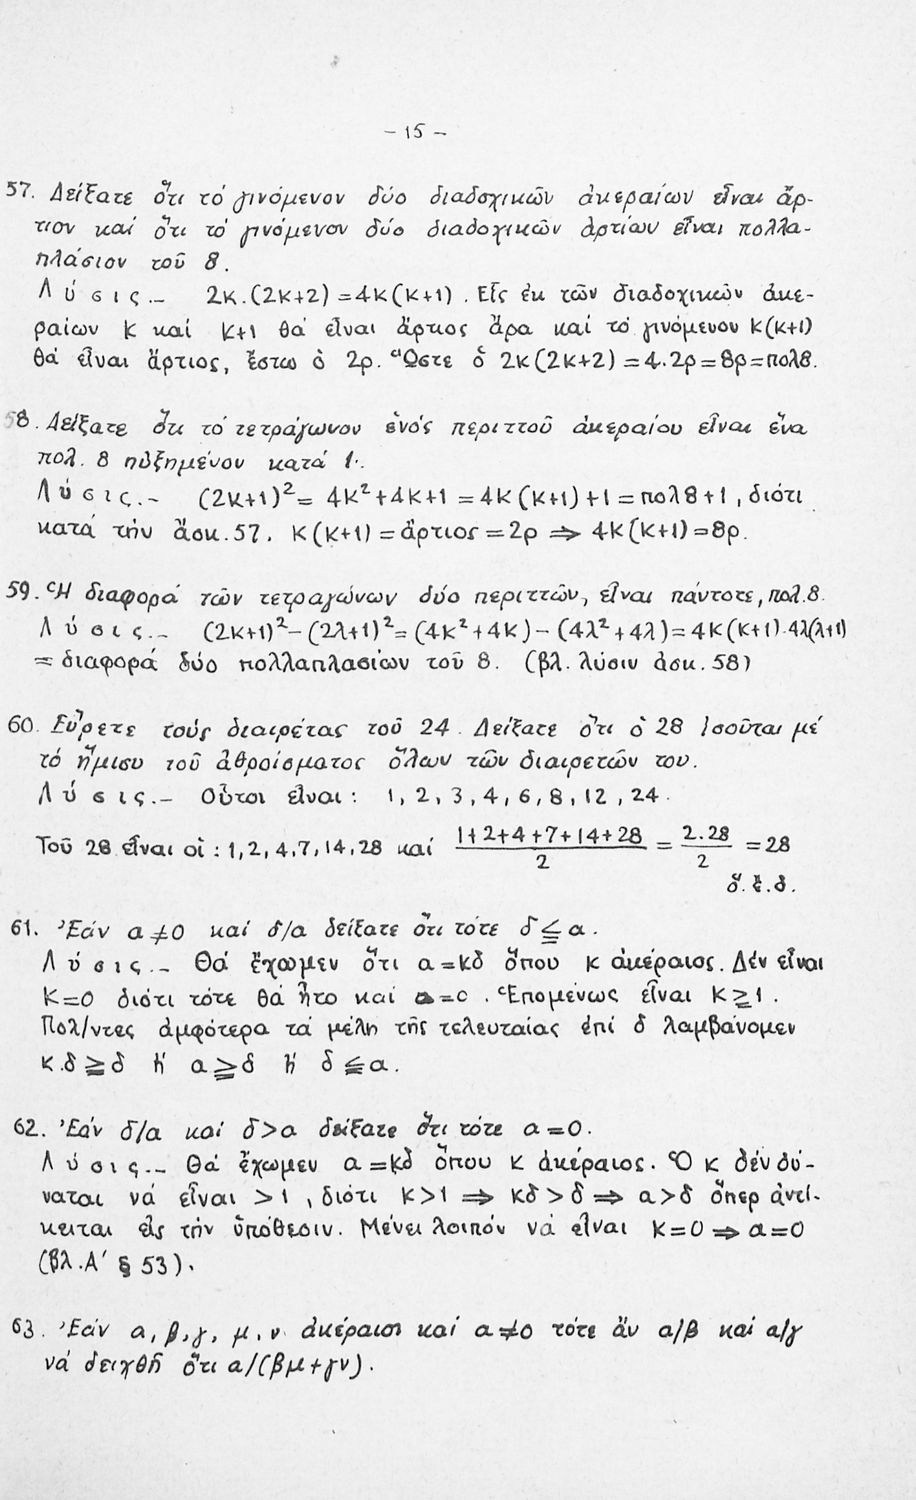 - 15 -
57. Δείξατε ὅτι τό γινόμενον δύο διαδοχικῶν ἀκεραίων εἶναι ἄρ-
τιον καί ὅτι τό γινόμενον δύο διαδοχικῶν ἀρτίων εἶναι πολλα-
πλάσιον τοῦ 8.
Λύσις.- 2κ.(2κ+2)=4κ(κ+1). Εἷς ἐκ τῶν διαδοχικῶν ἀκε-
ραίων κ καί κ+1 θά εἶναι ἄρτιος ἄρα καί τό γινόμενον κ(κ+1)
θά εἶναι ἄρτιος, ἔστω ὁ 2ρ. Ὥστε ὁ 2κ(2κ+2)=4.2ρ=8ρ=πολ8.
58. Δείξατε ὅτι τό τετράγωνον ἑνός περιττοῦ ἀκεραίου εἶναι ἕνα
πολ. 8 ηὐξημένον κατά 1.
Λύσις.- (2κ+1)²= 4κ²+4κ+1=4κ(κ+1)+1=πολ8+1, διότι
κατά τήν ἄσκ.57. κ(κ+1)=ἄρτιος=2ρ ⇒ 4κ(κ+1)=8ρ.
59. Ἡ διαφορά τῶν τετραγώνων δύο περιττῶν, εἶναι πάντοτε, πολ.8.
Λύσις.- (2κ+1)²-(2λ+1)²=(4κ²+4κ)-(4λ²+4λ)=4κ(κ+1)-4λ(λ+1)
= διαφορά δύο πολλαπλασίων τοῦ 8. (βλ. λύσιν ἀσκ. 58)
60. Εὕρετε τούς διαιρέτας τοῦ 24. Δείξατε ὅτι ὁ 28 ἰσοῦται μέ
τό ἥμισυ τοῦ ἀθροίσματος ὅλων τῶν διαιρετῶν του.
Λύσις.- Οὗτοι εἶναι: 1, 2, 3, 4, 6, 8, 12, 24.
Τοῦ 28 εἶναι οἱ: 1, 2, 4, 7, 14, 28 καί (1+2+4+7+14+28)/2 = (2.28)/2 = 28
ὅ.ἔ.δ.
61. Ἐάν α≠0 καί δ/α δείξατε ὅτι τότε δ≦α.
Λύσις.- Θά ἔχωμεν ὅτι α=κδ ὅπου κ ἀκέραιος. Δέν εἶναι
κ=0 διότι τότε θά ἦτο καί α=0. Ἑπομένως εἶναι κ≥1.
Πολ/ντες ἀμφότερα τά μέλη τῆς τελευταίας ἐπί δ λαμβάνομεν
κ.δ≧δ ἤ α≧δ ἤ δ≦α.
62. Ἐάν δ/α καί δ>α δείξατε ὅτι τότε α=0.
Λύσις.- Θά ἔχωμεν α=κδ ὅπου κ ἀκέραιος. Ὁ κ δέν δύ-
ναται νά εἶναι >1, διότι κ>1 ⇒ κδ>δ ⇒ α>δ ὅπερ ἀντί-
κειται εἰς τήν ὑπόθεσιν. Μένει λοιπόν νά εἶναι κ=0 ⇒ α=0
(βλ. Α΄ § 53).
63. Ἐάν α, β, γ, μ, ν ἀκέραιοι καί α≠0 τότε ἄν α/β καί α/γ
νά δειχθῆ ὅτι α/(βμ+γν).